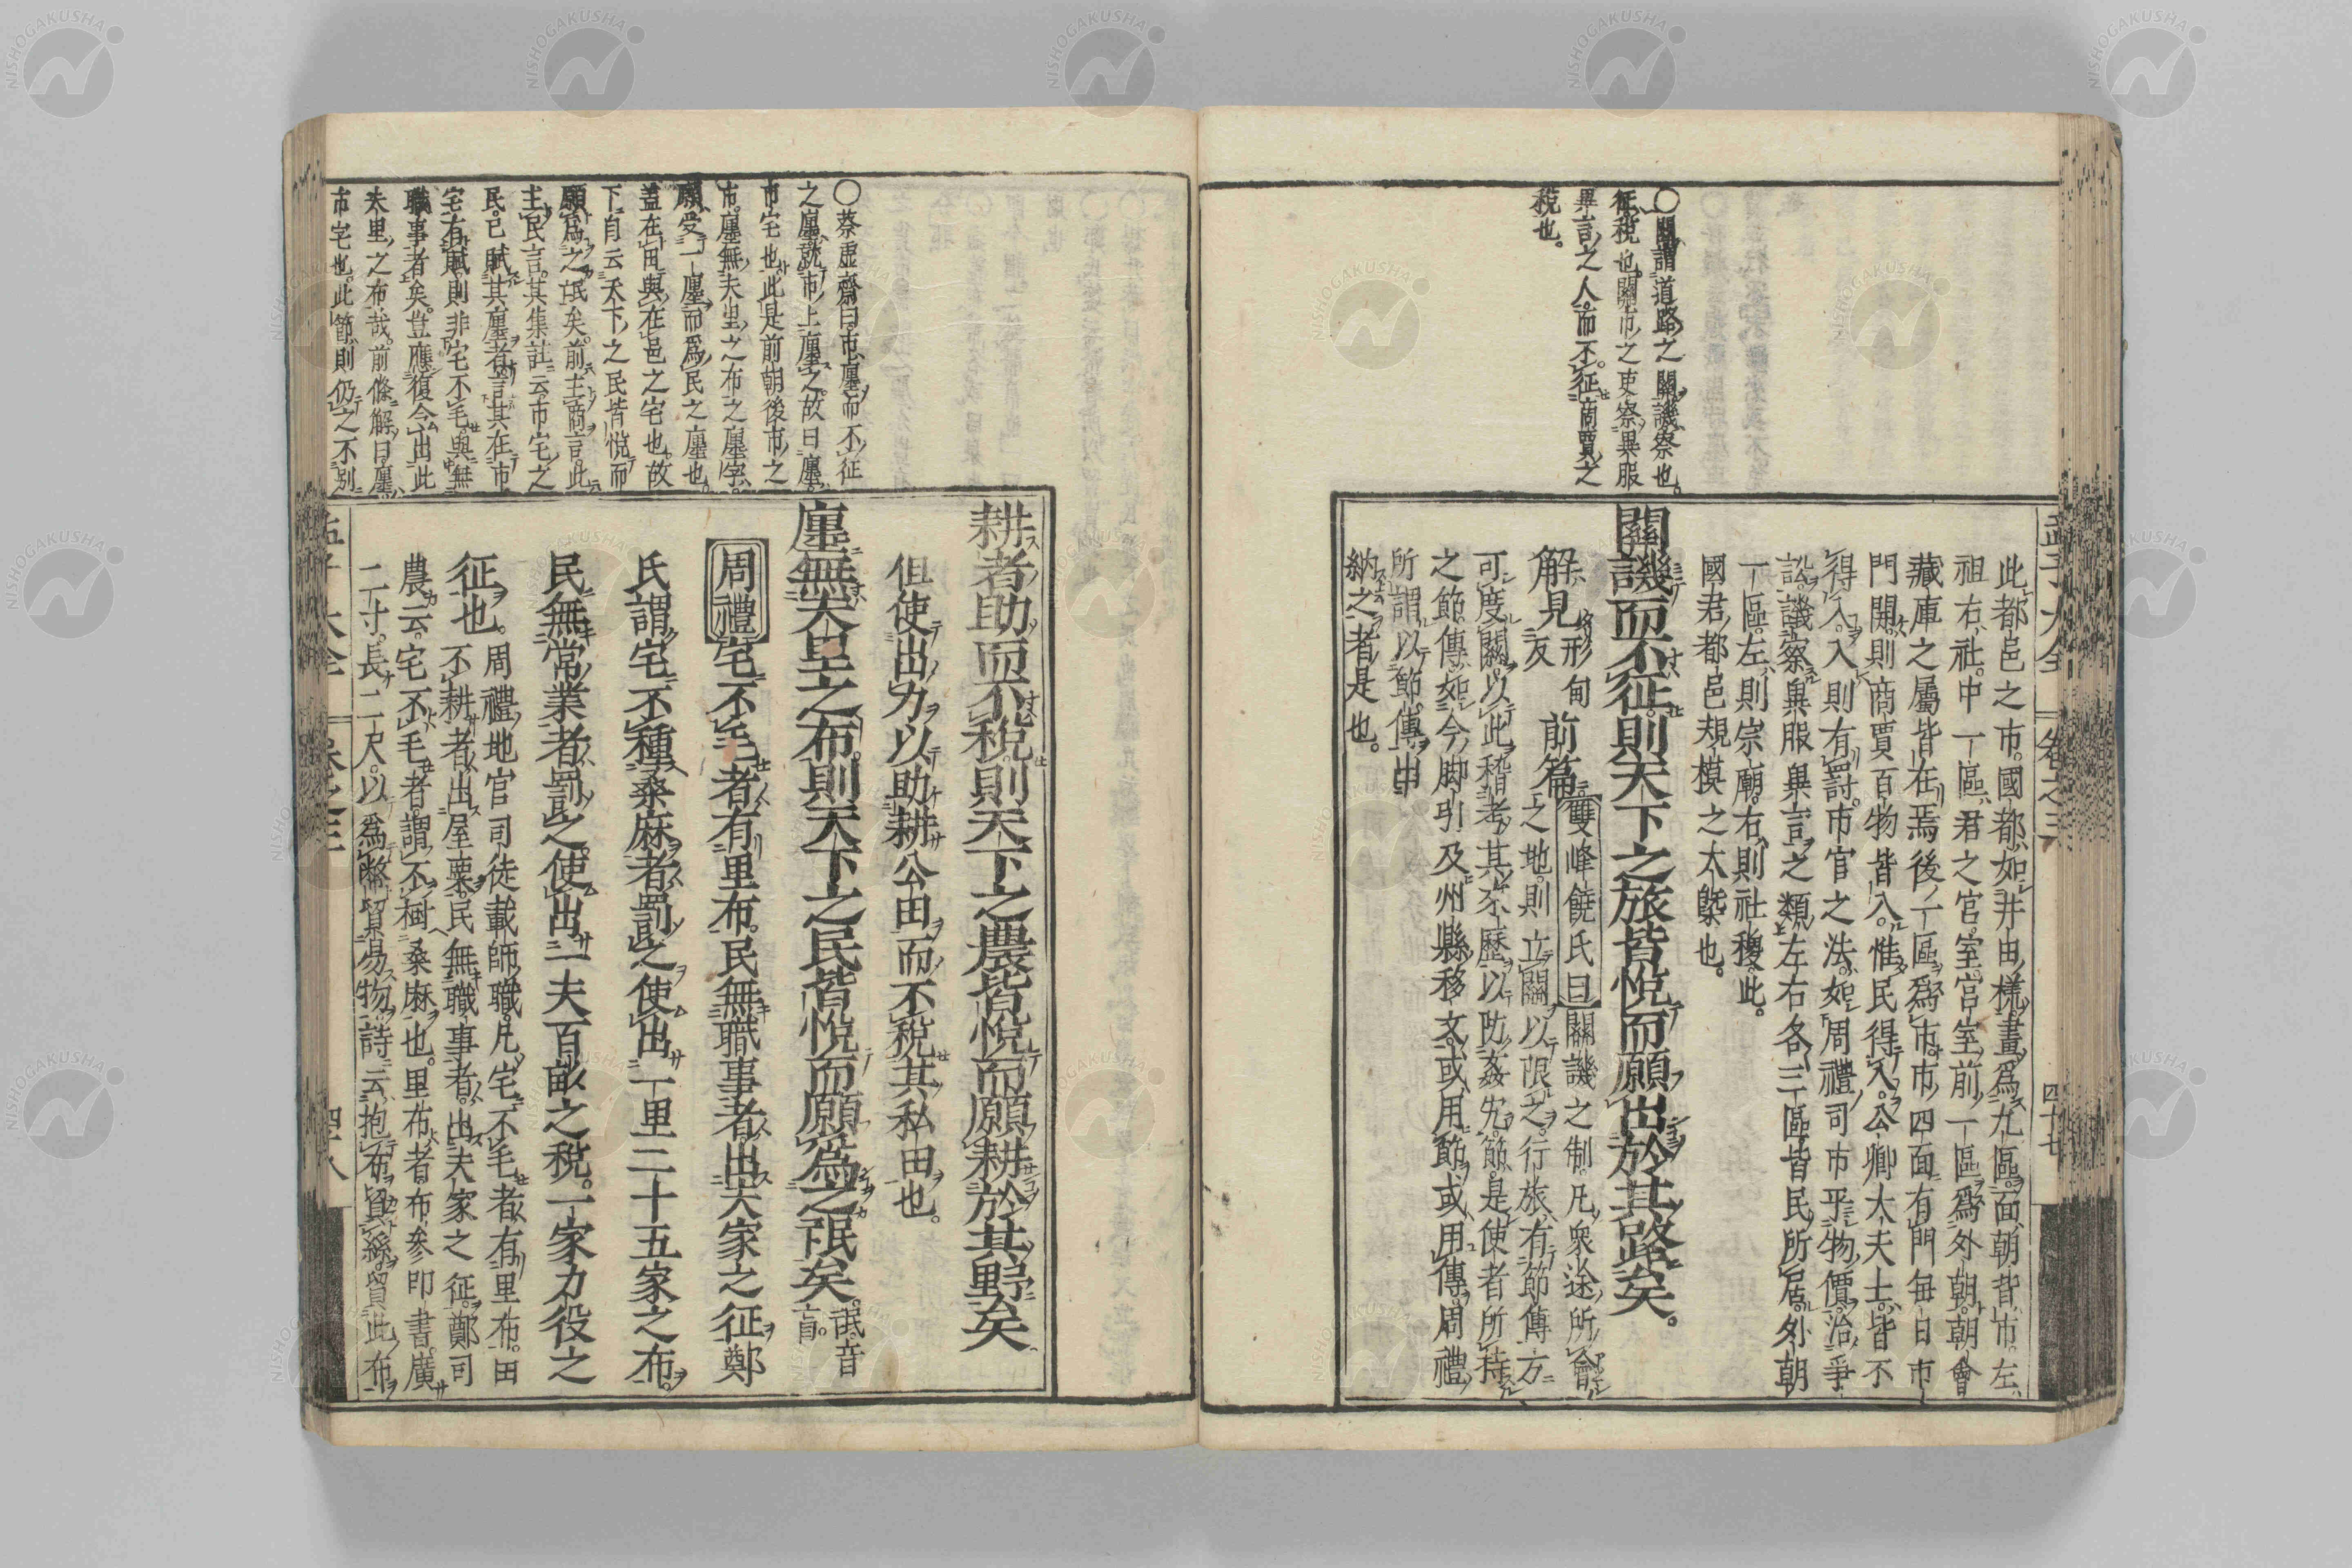 孟子大全 卷之三 四十七
○關謂道路之關譏察也
征税也關市之吏察異服
異言之人而不征商賈之
税也
此都邑之市國都如井田樣畫爲九區面朝背市左
祖右社中一區君之宮室宮室前一區爲外朝朝會
藏庫之屬皆在焉後一區爲市市四面有門每日市
門開則商賈百物皆入惟民得入公卿大夫士皆不
得入入則有罰市官之法如周禮司市平物價治爭
訟譏察異服異言之類左右各三區皆民所居外朝
一區左則宗廟右則社稷此
國君都邑規模之大槩也
關譏而不征則天下之旅皆悦而願出於其路矣
解見形甸反前篇雙峰饒氏曰關譏之制凡衆途所會
之地則立關以限之行旅有節傳方
可度關以此稽考其來歷以防姦宄節是使者所持
之節傳如今脚引及州縣移文或用節或用傳周禮
所謂以節傳出
納之者是也
○蔡虚齋曰市廛而不征
之廛就市上廛之故曰廛
市宅也此是前朝後市之
市廛無夫里之布之廛字
願受一廛而爲民之廛也
蓋在田與在邑之宅也故
下自云天下之民皆悦而
願爲之氓矣前主商言此
主民言其集註云市宅之
民已賦其廛者言其在市
宅有賦則非宅不毛與無
職事者矣豈應復令出此
夫里之布哉前條解曰廛
市宅也此節則仍之不別
耕者助而不税則天下之農皆悦而願耕於其野矣
但使出力以助耕公田而不税其私田也
廛無夫里之布則天下之民皆悦而願爲之氓矣氓音盲
周禮宅不毛者有里布民無職事者出夫家之征鄭
氏謂宅不種桑麻者罰之使出一里二十五家之布
民無常業者罰之使出一夫百畝之税一家力役之
征也周禮地官司徒載師職凡宅不毛者有里布田
不耕者出屋粟民無職事者出夫家之征鄭司
農云宅不毛者謂不樹桑麻也里布者布參印書廣
二寸長二尺以爲幣貿易物詩云抱布貿絲貿此布
孟子大全 卷之三 四十八